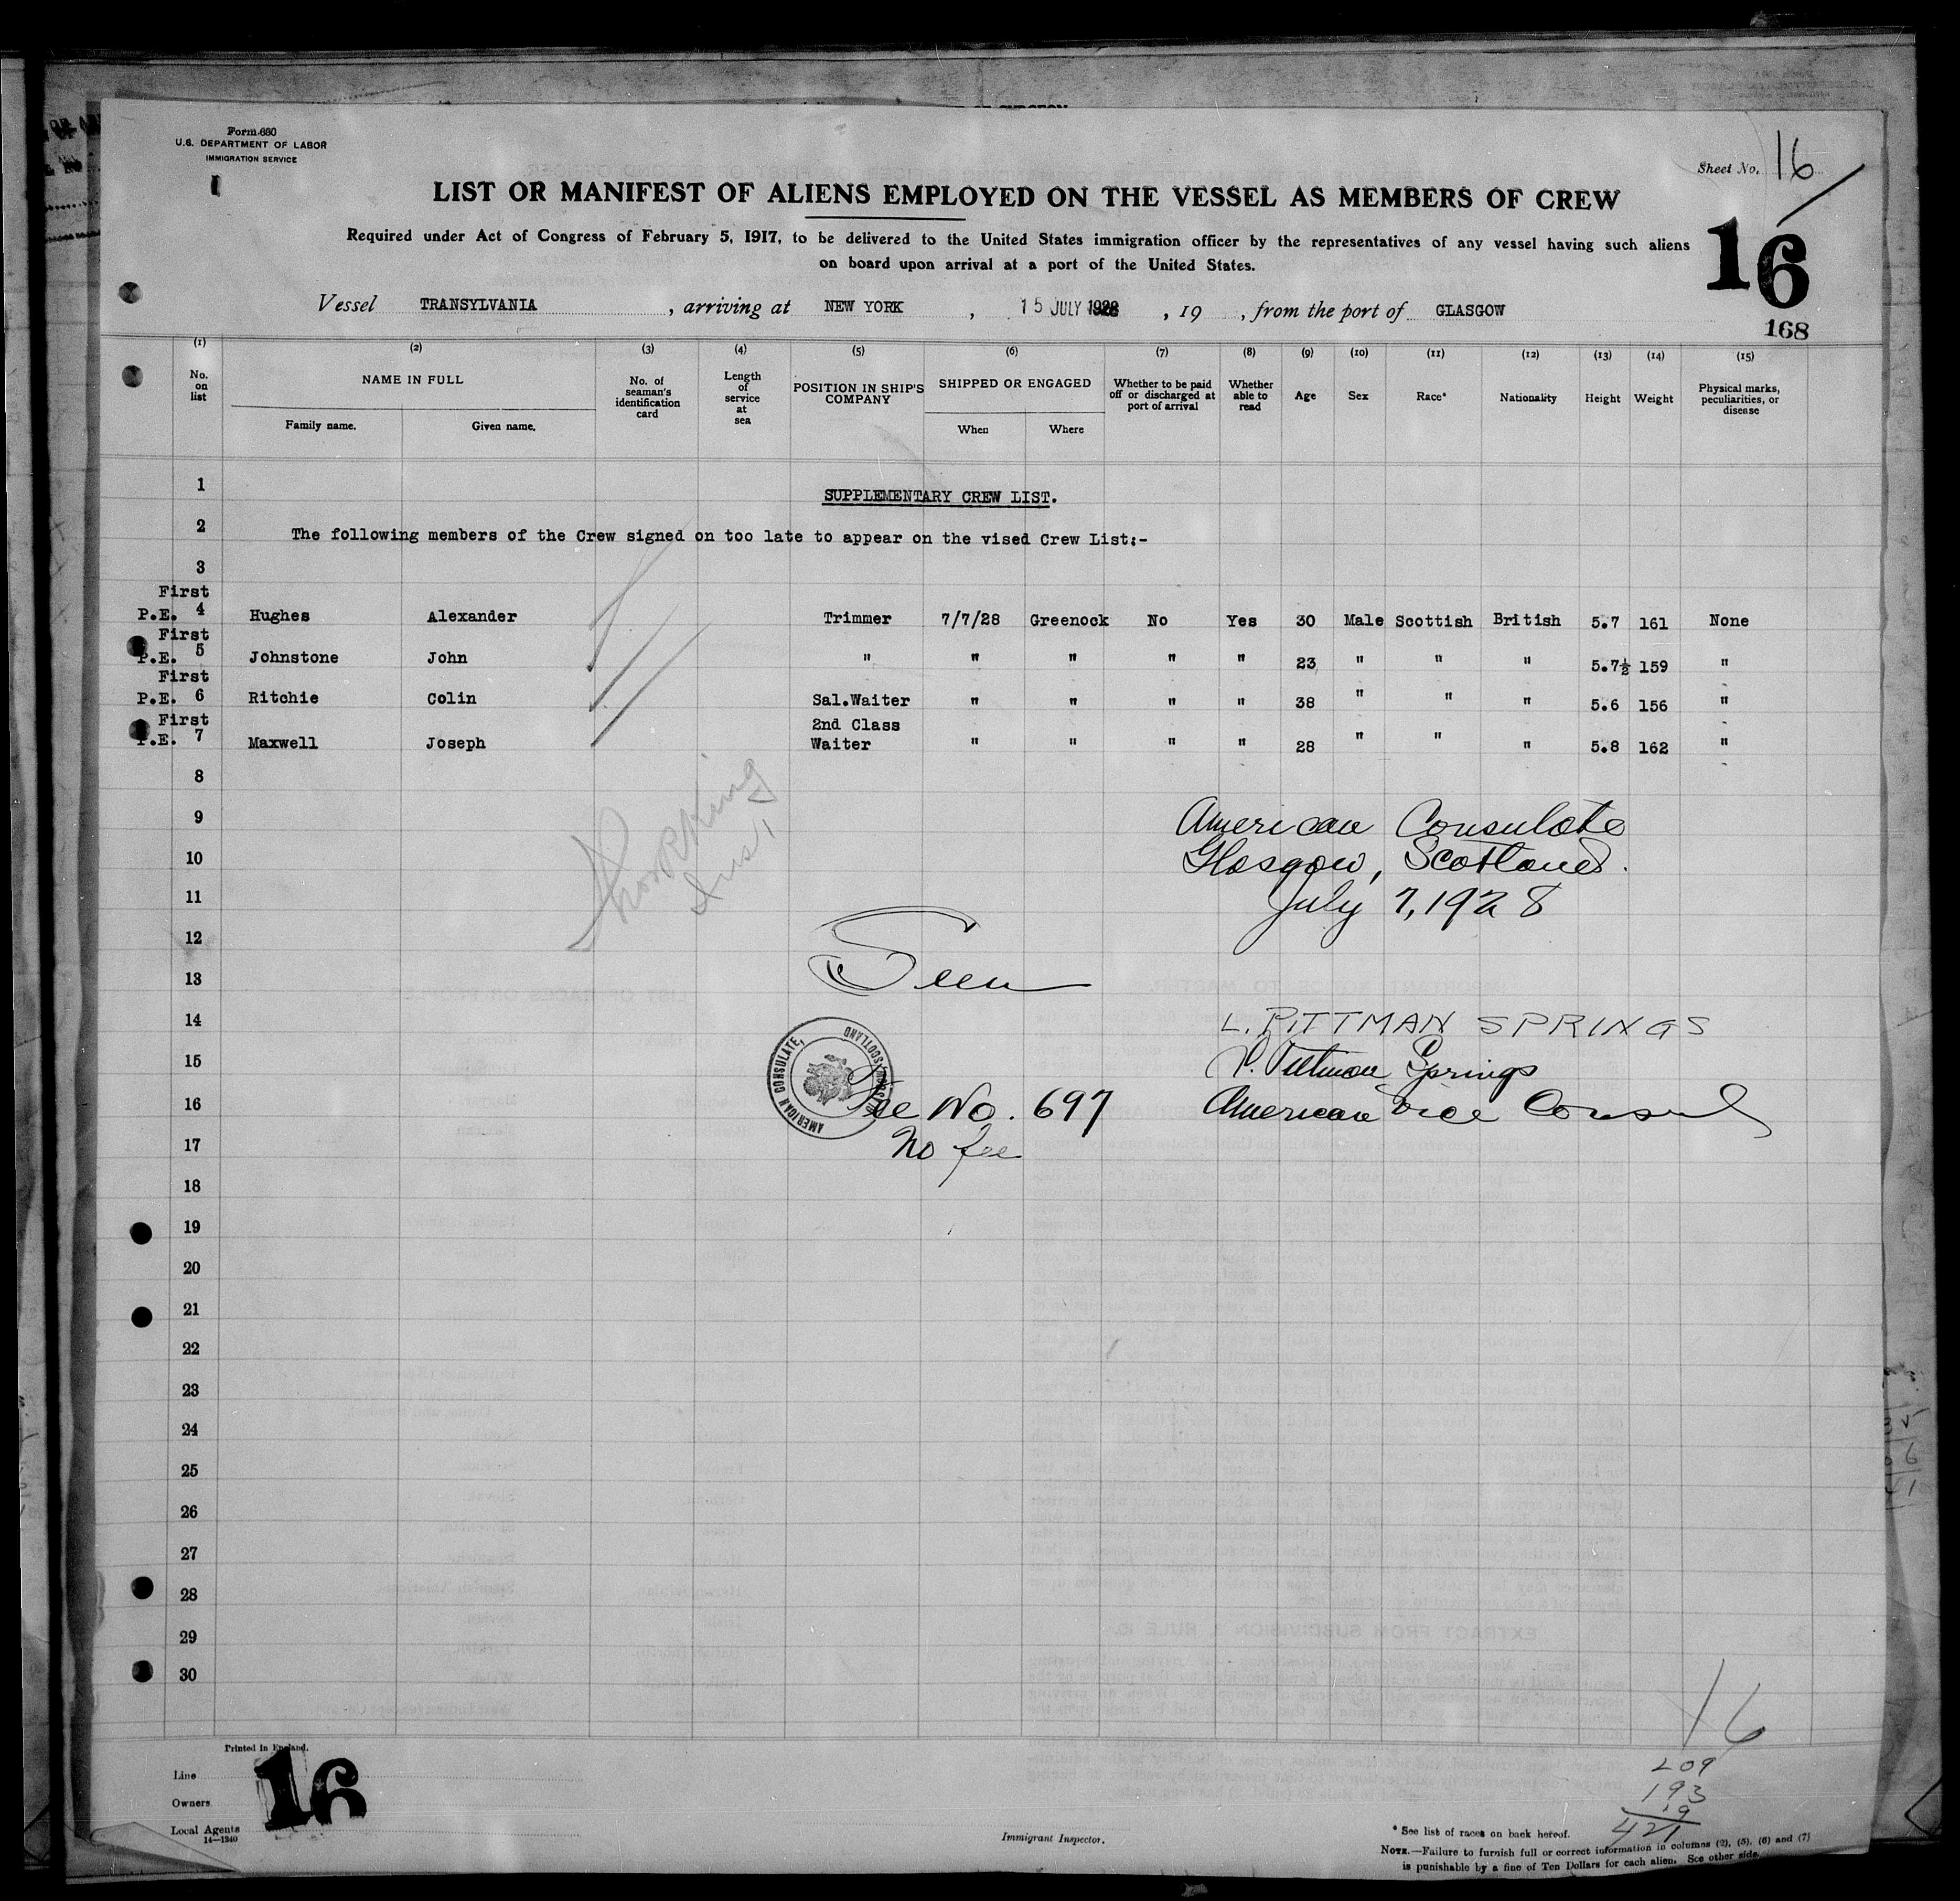 Form 680
U.S. DEPARTMENT OF LABOR
IMMIGRATION SERVICE
Sheet No. 16
LIST OR MANIFEST OF ALIENS EMPLOYED ON THE VESSEL AS MEMBERS OF CREW
Required under Act of Congress of February 5, 1917, to be delivered to the United States immigration officer by the representatives of any vessel having such aliens
on board upon arrival at a port of the United States.
16
168
Vessel TRANSYLVANIA, arriving at NEW YORK, 15 JULY 1928, 19 , from the port of GLASGOW
(1) (2) (3) (4) (5) (6) (7) (8) (9) (10) (11) (12) (13) (14) (15)
No. on list NAME IN FULL Family name. Given name. No. of seaman's identification card Length of service at sea POSITION IN SHIP'S COMPANY SHIPPED OR ENGAGED When Where Whether to be paid off or discharged at port of arrival Whether able to read Age Sex Race* Nationality Height Weight Physical marks, peculiarities, or disease
1
SUPPLEMENTARY CREW LIST.
2
The following members of the Crew signed on too late to appear on the vised Crew List:-
3
First
P.E. 4 Hughes Alexander Trimmer 7/7/28 Greenock No Yes 30 Male Scottish British 5.7 161 None
First
P.E. 5 Johnstone John " " " " " 23 " " " 5.7½ 159 "
First
P.E. 6 Ritchie Colin Sal.Waiter " " " " 38 " " " 5.6 156 "
First 2nd Class
P.E. 7 Maxwell Joseph Waiter " " " " 28 " " " 5.8 162 "
8
9 American Consulate
10 Glasgow, Scotland.
11 July 7, 1928
12
13 Seen
14 L. PITTMAN SPRINGS
15 L. Pittman Springs
AMERICAN CONSULATE, SCOTLAND
16 Fee No. 697 American Vice Consul
17 No fee
18
19
20
21
22
23
24
25
26
27
28
29
30
16
Printed in England.
Line
Owners
Local Agents
14—1240
16
209
193
19
421
Immigrant Inspector.
* See list of races on back hereof.
NOTE.—Failure to furnish full or correct information in columns (2), (5), (6) and (7)
is punishable by a fine of Ten Dollars for each alien. See other side.